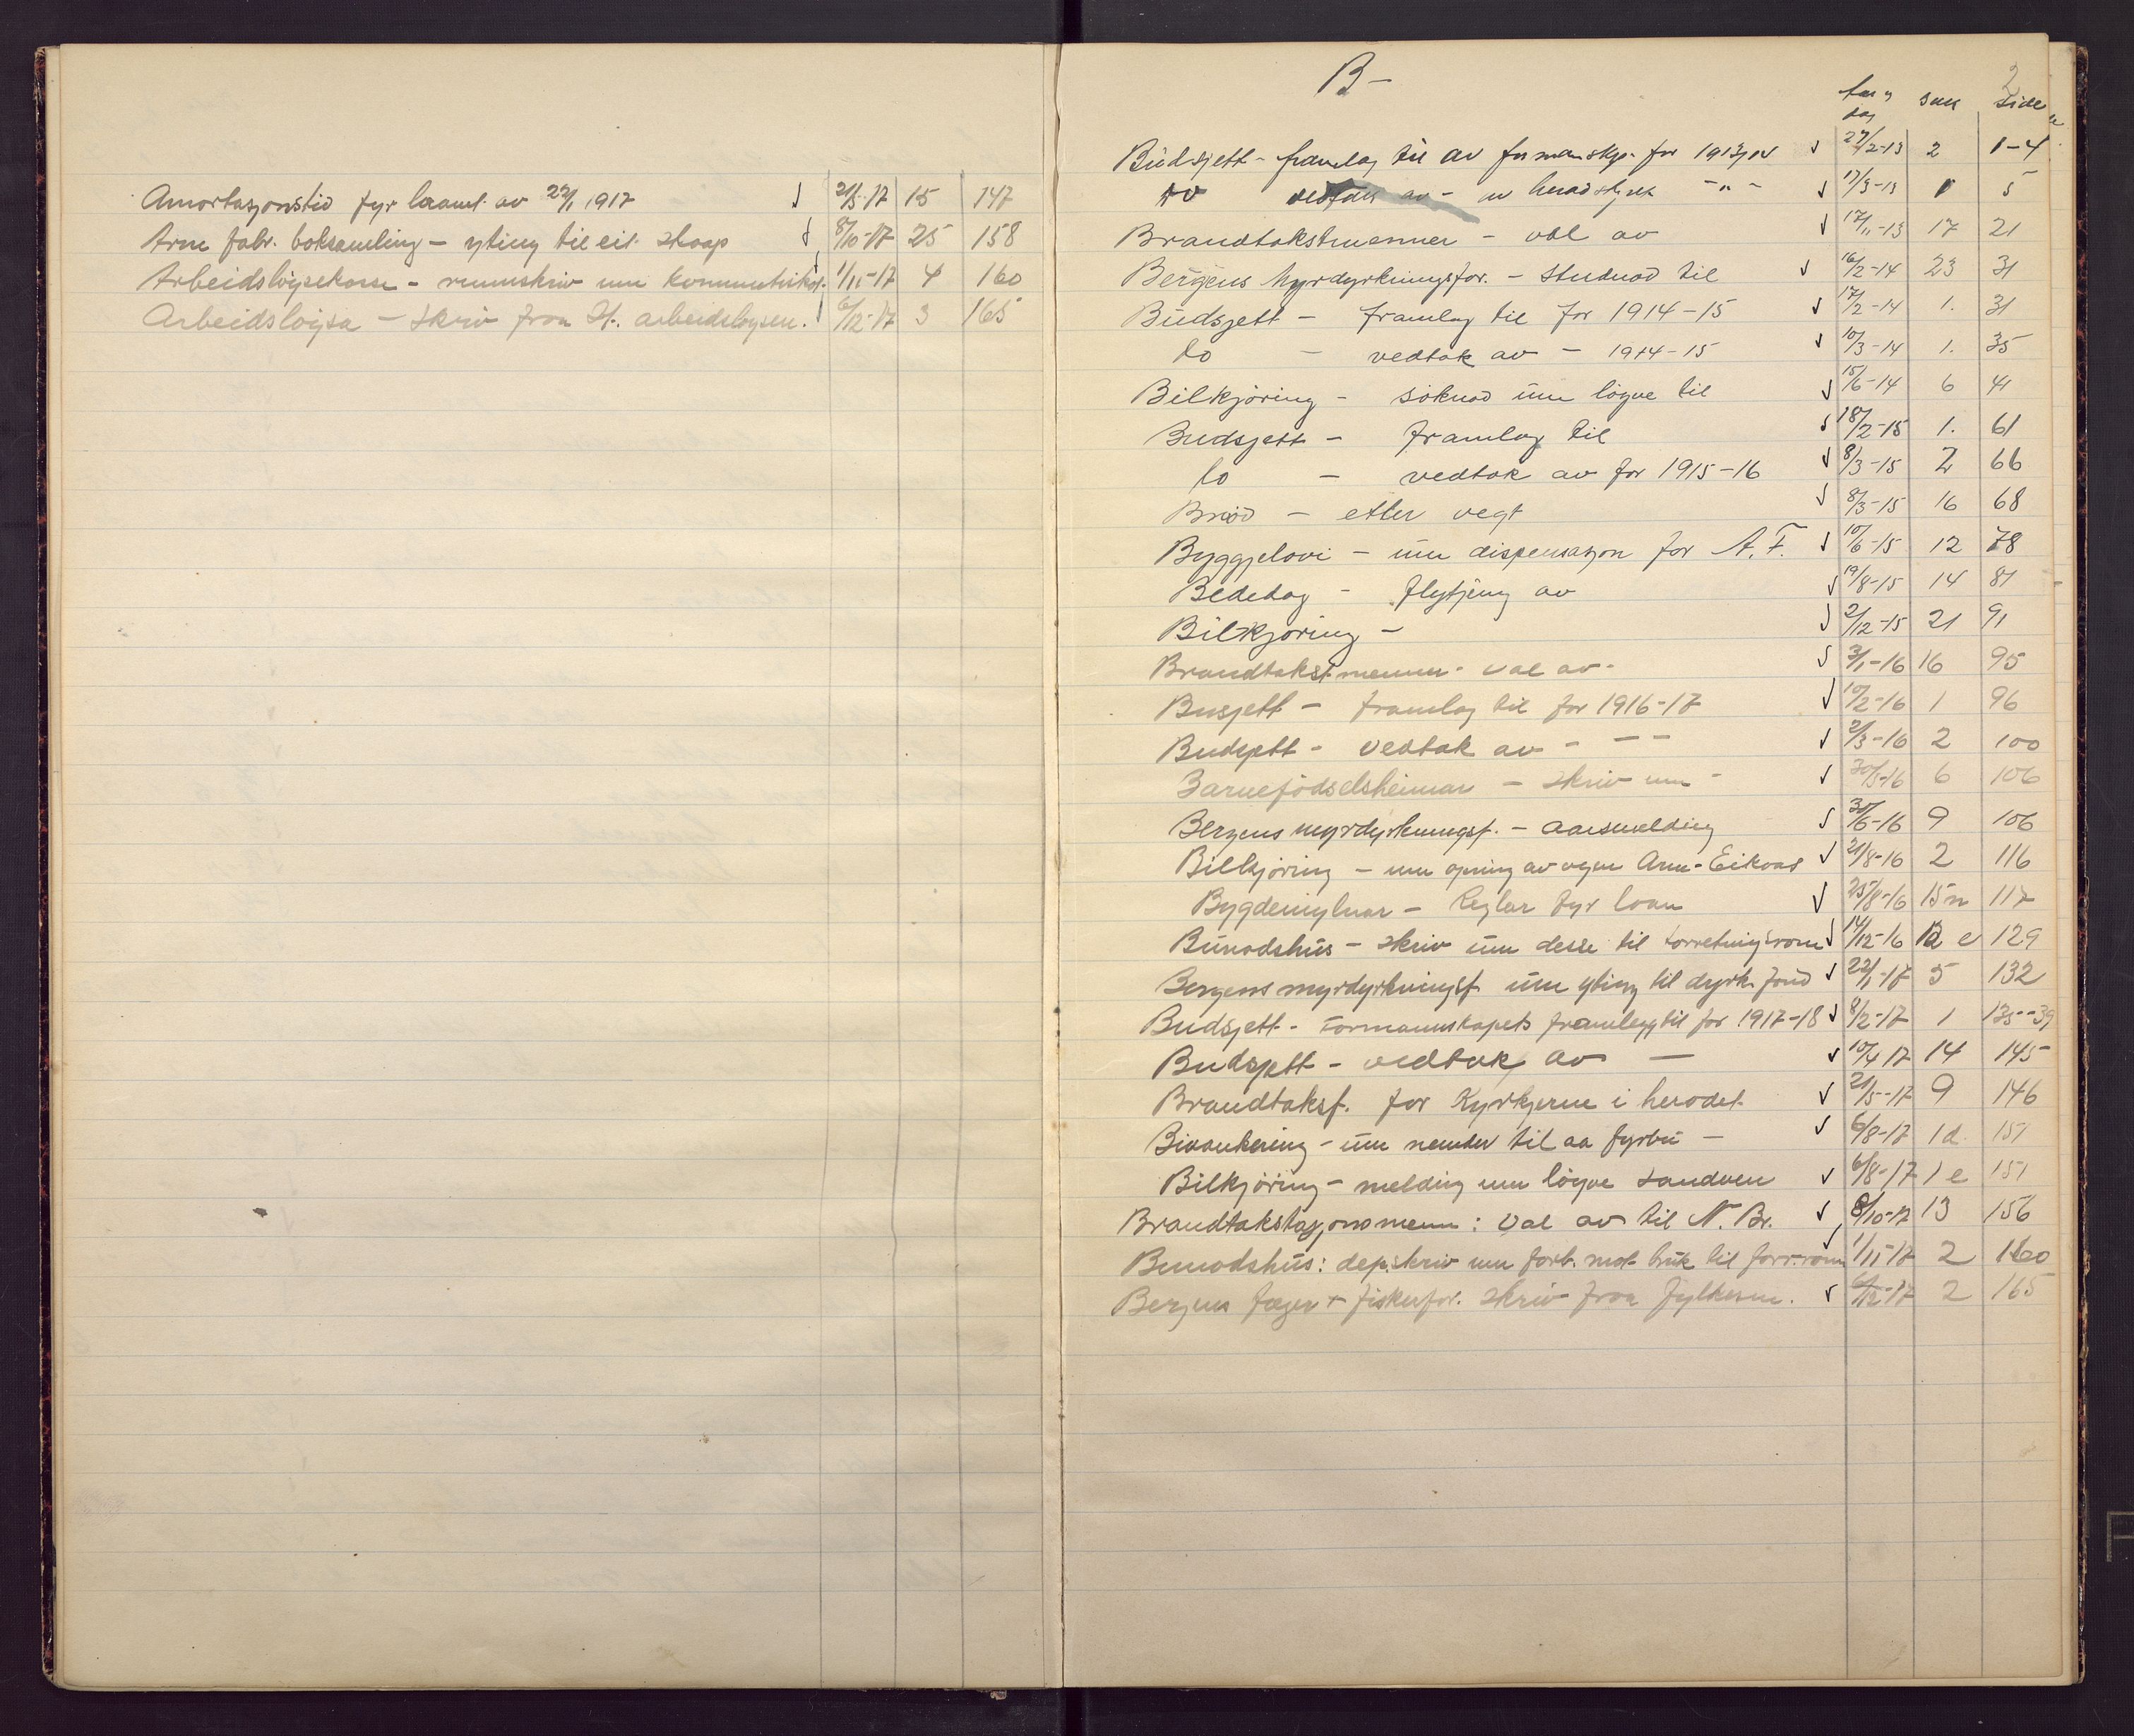 Amortasjonstid fyr laanet av 22/1 1917 √ 21/5-17 15 147
Arne fabr. boksamling - yting til eit skaap √ 8/10-17 25 158
Arbeidslöysekasse - rundskriv um √ 1/11-17 4 160
Arbeidslöysa - skriv fraa St. arbeidslöysen. √ 6/12-17 3 165
2
B-
dag sak side
Büdsjett - framlag til av formanskp. for 1913/14 √ 27/2-13 2 1-4
do vedtak av - av heradstyret - " - √ 17/3-13 1 5
Brandtakstmenner - val av √ 17/11-13 17 21
Bergens Myrdyrkningsfor. - studnad til √ 16/2-14 23 31
Büdsjett - framlag til for 1914-15 √ 17/2-14 1. 31
do - vedtak av - 1914-15 √ 10/3-14 1. 35
Bilkjöring - söknad üm löyve til √ 15/6-14 6 41
Budsjett - framlag til √ 18/2-15 1. 61
do - vedtak av for 1915-16 √ 8/3-15 2 66
Bröd - etter vegt √ 8/3-15 16 68
Byggjelovi - üm dispensasjon for A. F. √ 10/6-15 12 78
Bededag - flytjing av √ 19/8-15 14 81
Bilkjöring - √ 2/12-15 21 91
Brandtakstmenner - val av - √ 3/1-16 16 95
Busjett - framlag til for 1916-17 √ 10/2-16 1 96
Budsjett - vedtak av - - - √ 2/3-16 2 100
Barnefödselsheimar - skriv um - √ 30/5-16 6 106
Bergens myrdyrkningsf. - aarsmelding √ 30/6-16 9 106
Bilkjöring - um opning av vegen Arne-Eikaas √ 21/8-16 2 116
Bygdemylnar - Reglar fyr laan √ 25/8-16 15n 117
Bünadshüs - skriv üm desse til forretningsrom √ 14/12-16 12 e 129
Bergens myrdyrkningsf. üm yting til dyrk. fond √ 22/1-17 5 132
Büdsjett - formannskapets framlegg til for 1917-18 √ 8/2-17 1 135--39
Budsjett - vedtak av - √ 10/4 17 14 145
Brandtakst. for Kyrkjerne i heradet. √ 21/5-17 9 146
Bivankering - üm nemder til aa fyrbü - √ 6/8-17 1 d. 151
Bilkjöring - melding um löyve Sandven √ 6/8-17 1 e 151
Brandtakstasjonsmenn: val av til N. Br. √ 8/10-17 13 156
Bunadshüs: dep. skriv um forb. mot brük til forr.rom √ 1/11-17 2 160
Bergens Jæger + fiskerfor. skriv fraa fylkesm. √ 6/12-17 2 165